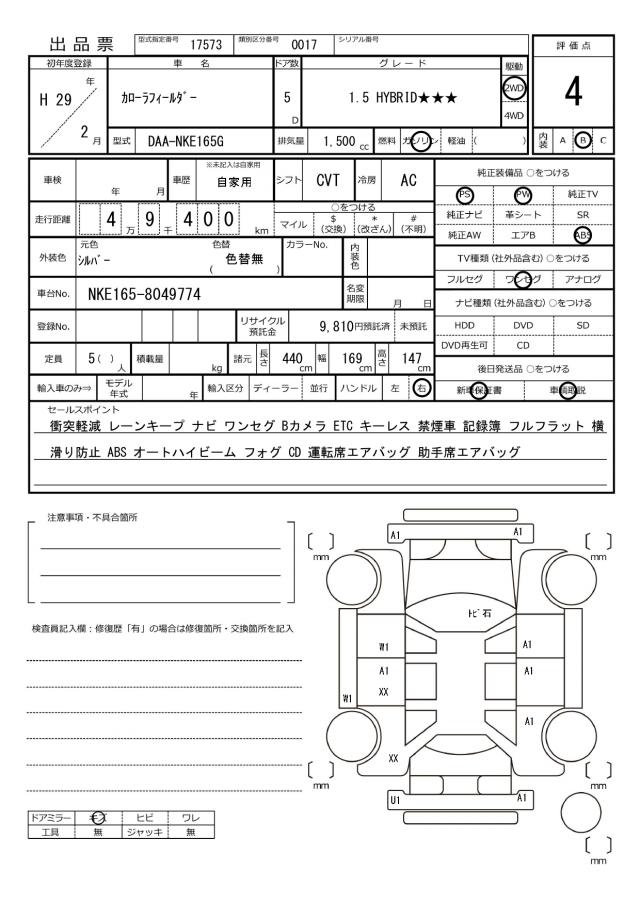 出品票
型式指定番号 17573 類別区分番号 0017 シリアル番号
評価点
初年度登録 車名 ドア数 グレード 駆動
H 29 年 2 月
カローラフィールダー
5 D
1.5 HYBRID★★★
2WD
4WD
4
型式 DAA-NKE165G 排気量 1,500 cc 燃料 ガソリン 軽油 ( )
内装 A B C
車検 年 月 車歴 ※未記入は自家用 自家用 シフト CVT 冷房 AC
純正装備品 ○をつける
PS PW 純正TV
走行距離 4 万 9 千 4 0 0 km
○をつける
マイル $ (交換) * (改ざん) # (不明)
純正ナビ 革シート SR
純正AW エアB ABS
外装色 元色 シルバー 色替 色替無 ( ) カラーNo. 内装色
TV種類 (社外品含む) ○をつける
フルセグ ワンセグ アナログ
車台No. NKE165-8049774 名変期限 月 日
ナビ種類 (社外品含む) ○をつける
登録No. リサイクル預託金 9,810円預託済 未預託
HDD DVD SD
DVD再生可 CD
定員 5( ) 人 積載量 kg 諸元 長さ 440 cm 幅 169 cm 高さ 147 cm
後日発送品 ○をつける
輸入車のみ⇒ モデル年式 年 輸入区分 ディーラー 並行 ハンドル 左 右
新車保証書 車輌取説
セールスポイント
衝突軽減 レーンキープ ナビ ワンセグ Bカメラ ETC キーレス 禁煙車 記録簿 フルフラット 横
滑り防止 ABS オートハイビーム フォグ CD 運転席エアバッグ 助手席エアバッグ
注意事項・不具合箇所
検査員記入欄：修復歴「有」の場合は修復箇所・交換箇所を記入
A1 A1
[ ] mm [ ] mm
トビ石
W1 A1
A1 A1
XX
W1
A1
XX
[ ] mm [ ] mm
U1 A1
[ ] mm
ドアミラー キズ ヒビ ワレ
工具 無 ジャッキ 無